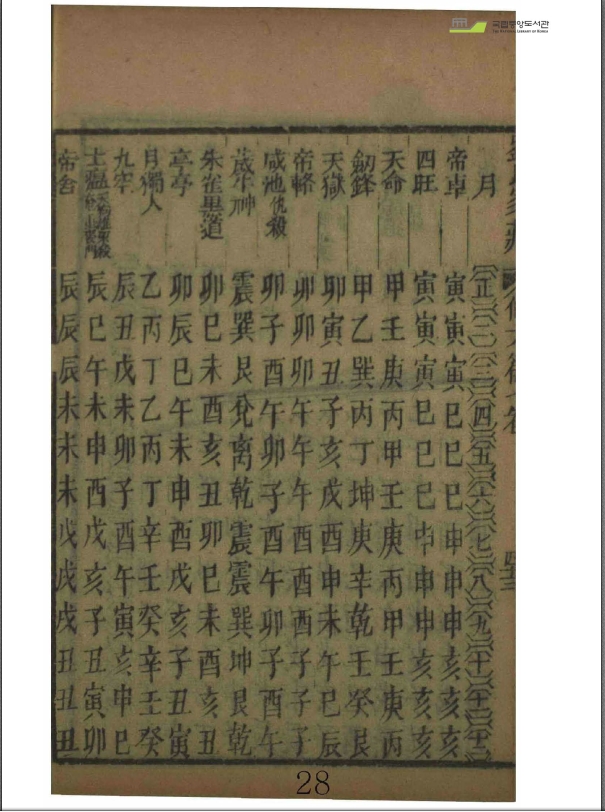 국립중앙도서관
THE NATIONAL LIBRARY OF KOREA
月 正 二 三 四 五 六 七 八 九 十 十一 十二
帝車 寅寅寅巳巳巳申申申亥亥亥
四旺 寅寅寅巳巳巳申申申亥亥亥
天命 甲壬庚丙甲壬庚丙甲壬庚丙
劒鋒 甲乙巽丙丁坤庚辛乾壬癸艮
天獄 卯寅丑子亥戌酉申未午巳辰
帝輅 卯卯卯午午午酉酉酉子子子
咸池仇殺 卯子酉午卯子酉午卯子酉午
神 震巽艮兌离乾震震巽坤艮乾
朱雀黑道 卯巳未酉亥丑卯巳未酉亥丑
亭亭 卯辰巳午未申酉戌亥子丑寅
月獨人 乙丙丁乙丙丁辛壬癸辛壬癸
九空 辰丑戌未卯子酉午寅亥申巳
土瘟 辰巳午未申酉戌亥子丑寅卯
帝舍 辰辰辰未未未戌戌戌丑丑丑
28